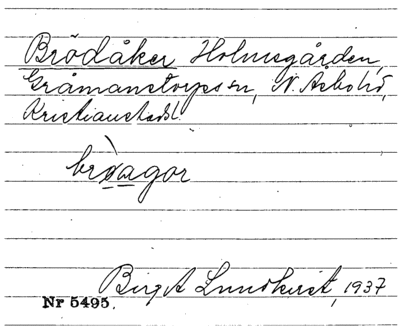 Brödåker Holmsgården,
Gråmanstorps sn, N. Åsbo hd,
Kristianstads l.
brö̀agor
Birgit Lundkvist, 1937
Nr 5495.